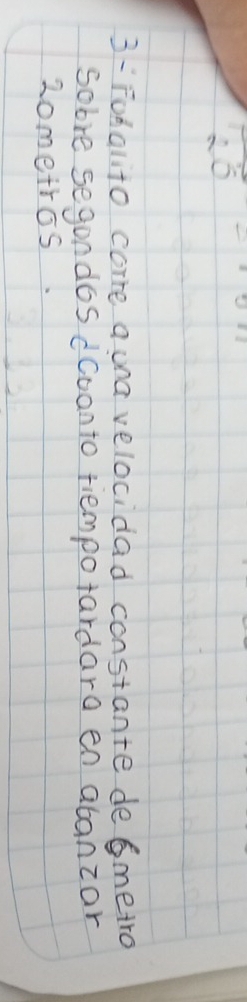 3- Fulanito corre a una velocidad constante de 6 metro
sobre segundos ¿Cuanto tiempo tardara en abanzar
20 metros.